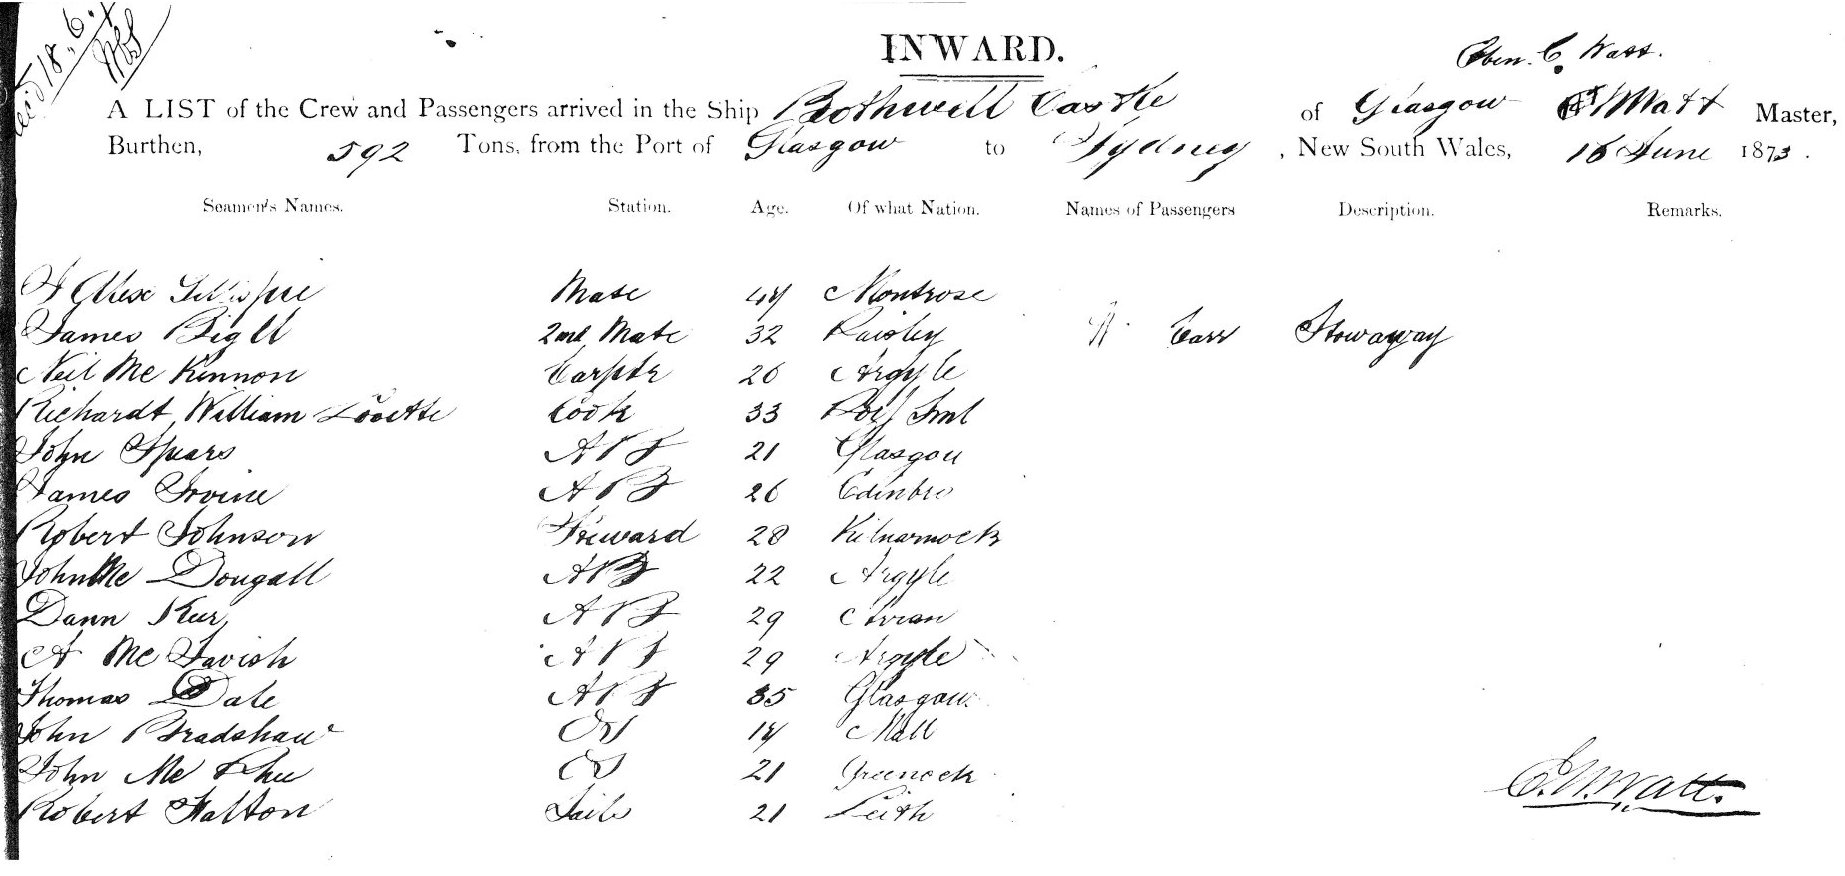 INWARD.
Eben. C. Watt.
A LIST of the Crew and Passengers arrived in the Ship Bothwell Castle of Glasgow Watt Master,
Burthen, 592 Tons, from the Port of Glasgow to Sydney, New South Wales, 16 June 1873.
Seamen's Names. Station. Age. Of what Nation. Names of Passengers Description. Remarks.
Alex Mate Montrose
James 2nd Mate 32 Paisley Carr Stowaway
Neil Mc Kinnon Carptr 26 Argyle
Richardt William Cook 33
John Spears A B S 21 Glasgow
James Irvine A B S 26 Edinbro
Robert Johnson Steward 28 Kilnarmock
John Mc Dougall A B S 22 Argyle
Dann A B S 29 Arran
A Mc Tavish A B S 29 Argyle
Thomas Dale A B S 35 Glasgow
John Bradshaw OS Mull
John Mc Phee OS 21 Greenock
Robert Hatton 21 Leith
E. Watt.